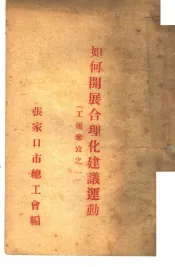 如何開展合理化建議運動
(工運參攷之一)
張家口市總工會編